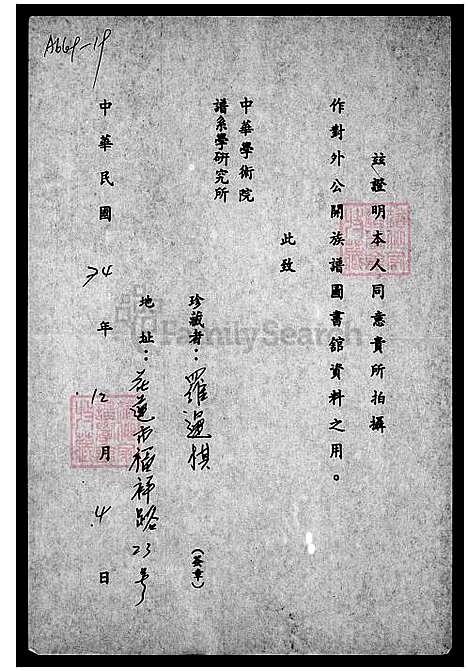 A669-19
茲證明本人同意貴所拍攝
作對外公開族譜圖書館資料之用。
此致
中華學術院
譜系學研究所
珍藏者：羅運棋
(簽章)
地址：花蓮市福祥路23号
中華民國74年12月4日
FamilySearch